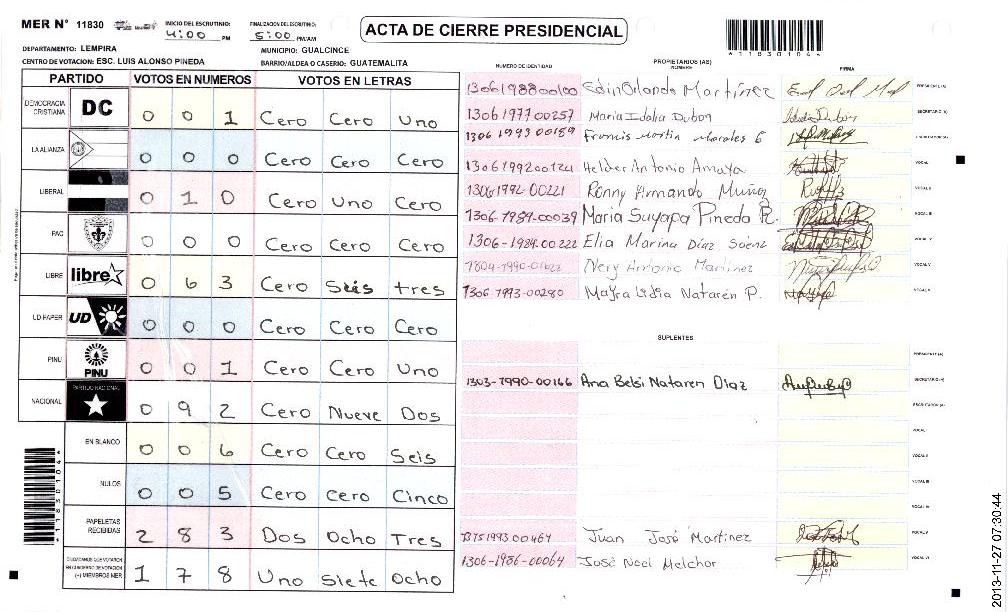 MER N° 11830
INICIO DEL ESCRUTINIO: 4:00 PM
FINALIZACION DEL ESCRUTINIO: 5:00 PM/AM
ACTA DE CIERRE PRESIDENCIAL
*118301044*
DEPARTAMENTO: LEMPIRA
MUNICIPIO: GUALCINCE
CENTRO DE VOTACION: ESC. LUIS ALONSO PINEDA
BARRIO/ALDEA O CASERIO: GUATEMALITA
PARTIDO VOTOS EN NUMEROS VOTOS EN LETRAS
DEMOCRACIA CRISTIANA DC 0 0 1 Cero Cero Uno
LA ALIANZA 0 0 0 Cero Cero Cero
LIBERAL 0 1 0 Cero Uno Cero
PAC 0 0 0 Cero Cero Cero
LIBRE libre 0 6 3 Cero Seis tres
UD FAPER UD 0 0 0 Cero Cero Cero
PINU PINU 0 0 1 Cero Cero Uno
NACIONAL PARTIDO NACIONAL 0 9 2 Cero Nueve Dos
EN BLANCO 0 0 6 Cero Cero Seis
NULOS 0 0 5 Cero Cero Cinco
PAPELETAS RECIBIDAS 2 8 3 Dos Ocho Tres
(+) MIEMBROS MER 1 7 8 Uno Siete Ocho
NUMERO DE IDENTIDAD PROPIETARIOS (AS) NOMBRE FIRMA
1306198800100 Edin Orlando Martínez PRESIDENTE (A)
1306197700257 Maria Idalia Dubon SECRETARIO (A)
1306199300189 Francis Morales G
1306199200124 Helder Antonio Amaya VOCAL
1306-1992-00221 Ronny Armando Muñoz
1306-1984-00039 Maria Suyapa Pineda
1306-1984-00222 Elia Marina Díaz Sáenz
Nery Antonio Martinez
1306-1993-00280 Mayra Lidia Natarén P.
SUPLENTES
PRESIDENTE (A)
1303-1990-00166 Ana Belsi Nataren Diaz SECRETARIO (A)
Juan José Martinez
1306-1986-00064 José Noel Melchor
2013-11-27 07:30:44